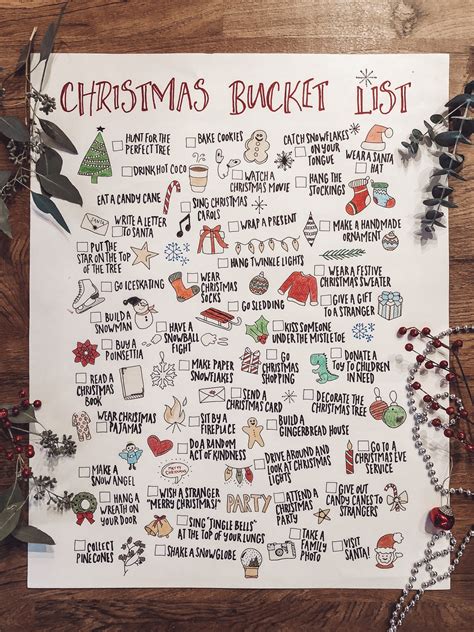 CHRISTMAS BUCKET LIST
HUNT FOR THE
PERFECT TREE
BAKE COOKIES
CATCH SNOWFLAKES
ON YOUR
TONGUE
WEAR A SANTA
HAT
DRINK HOT COCO
WATCH A
CHRISTMAS MOVIE
HANG THE
STOCKINGS
EAT A CANDY CANE
SING CHRISTMAS
CAROLS
WRITE A LETTER
TO SANTA
WRAP A PRESENT
MAKE A HANDMADE
ORNAMENT
PUT THE
STAR ON THE TOP
OF THE TREE
HANG TWINKLE LIGHTS
GO ICESKATING
WEAR
CHRISTMAS
SOCKS
WEAR A FESTIVE
CHRISTMAS SWEATER
GO SLEDDING
GIVE A GIFT
TO A STRANGER
BUILD A
SNOWMAN
HAVE A
SNOWBALL
FIGHT
KISS SOMEONE
UNDER THE MISTLETOE
BUY A
POINSETTIA
MAKE PAPER
SNOWFLAKES
GO
CHRISTMAS
SHOPPING
DONATE A
TOY TO CHILDREN
IN NEED
READ A
CHRISTMAS
BOOK
SEND A
CHRISTMAS CARD
DECORATE THE
CHRISTMAS TREE
WEAR CHRISTMAS
PAJAMAS
SIT BY A
FIREPLACE
BUILD A
GINGERBREAD HOUSE
DO A RANDOM
ACT OF KINDNESS
DRIVE AROUND AND
LOOK AT CHRISTMAS
LIGHTS
GO TO A
CHRISTMAS EVE
SERVICE
MAKE A
SNOW ANGEL
MERRY CHRISTMAS
HANG A
WREATH ON
YOUR DOOR
WISH A STRANGER
"MERRY CHRISTMAS!"
PARTY
ATTEND A
CHRISTMAS
PARTY
GIVE OUT
CANDY CANES TO
STRANGERS
SING "JINGLE BELLS"
AT THE TOP OF YOUR LUNGS
COLLECT
PINECONES
SHAKE A SNOWGLOBE
TAKE A
FAMILY
PHOTO
VISIT
SANTA!